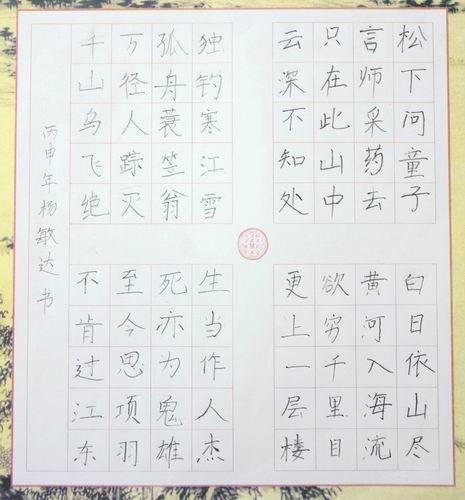 松下问童子
言师采药去
只在此山中
云深不知处
千山鸟飞绝
万径人踪灭
孤舟蓑笠翁
独钓寒江雪
白日依山尽
黄河入海流
欲穷千里目
更上一层楼
生当作人杰
死亦为鬼雄
至今思项羽
不肯过江东
丙申年杨敏达书